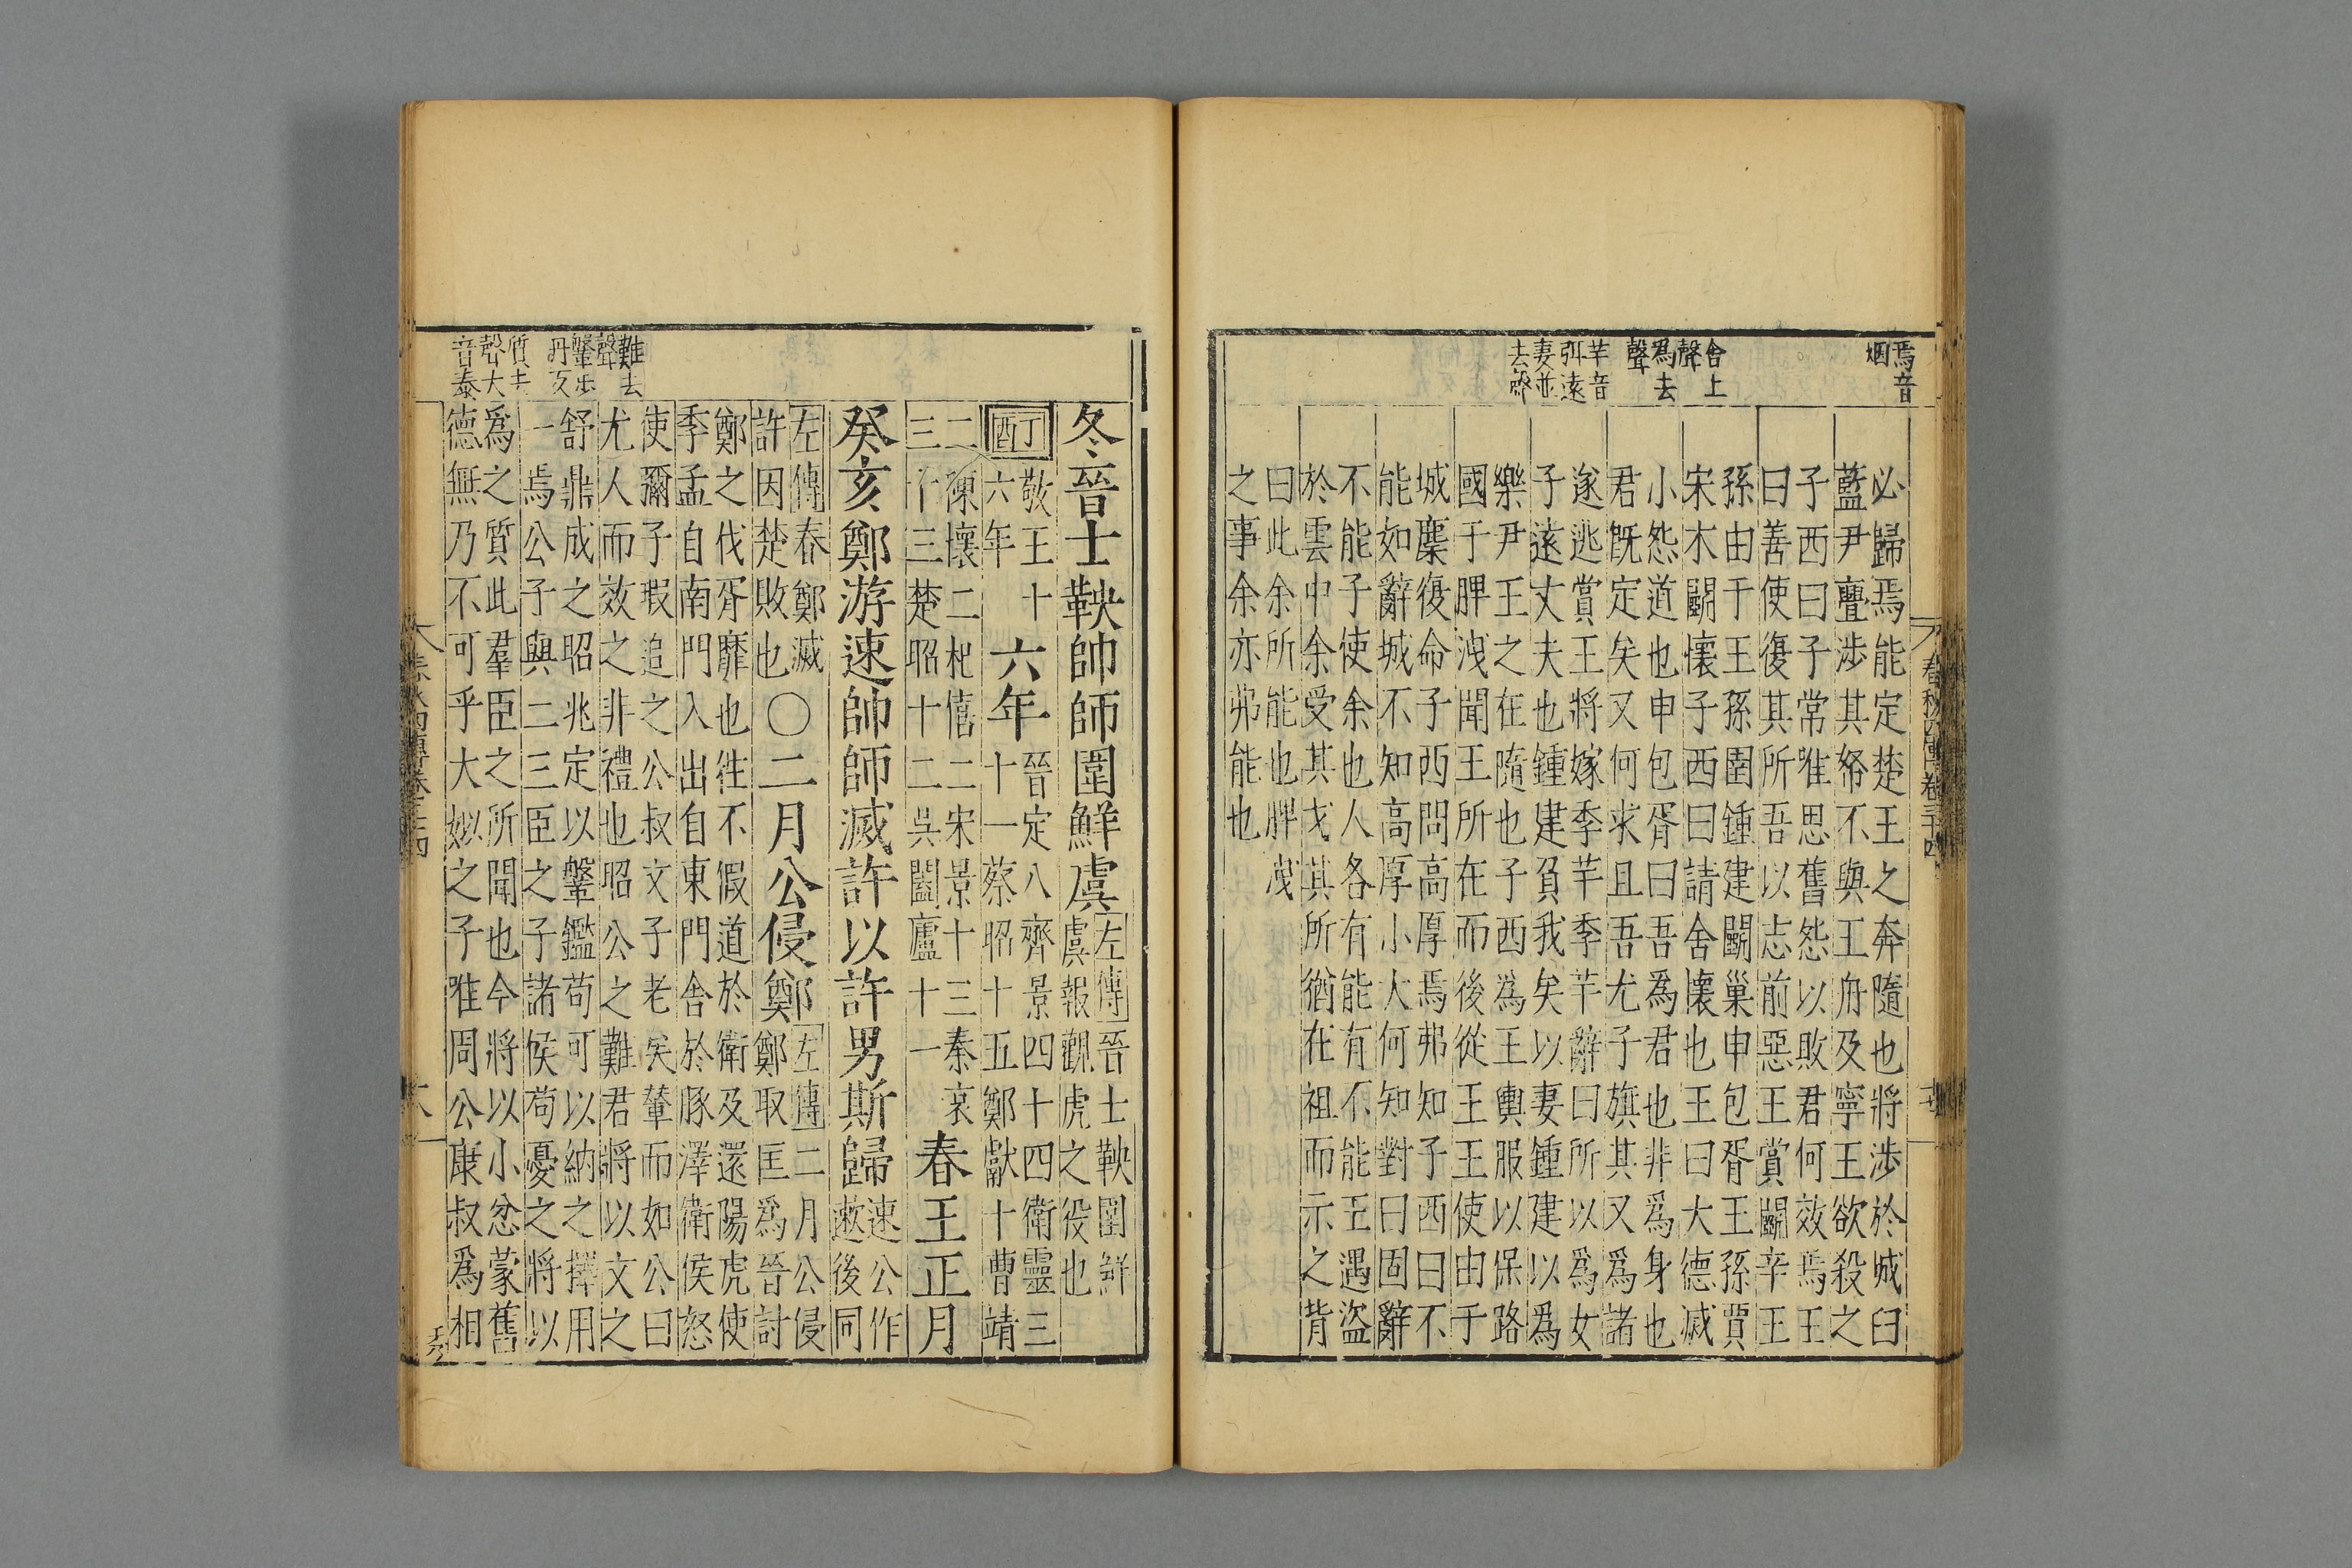 焉音
烟
舍上
聲
爲去
聲
芉音
弭遠
妻並
去聲
必歸焉能定楚王之奔隨也將涉於城臼
藍尹亹涉其帑不與王舟及寧王欲殺之
子西曰子常唯思舊怨以敗君何效焉王
曰善使復其所吾以志前惡王賞鬬辛王
孫由于王孫圉鍾建鬬巢申包胥王孫賈
宋木鬬懷子西曰請舍懷也王曰大德滅
小怨道也申包胥曰吾爲君也非爲身也
君既定矣又何求且吾尤子旗其又爲諸
遂逃賞王將嫁季芉季芉辭曰所以爲女
子遠丈夫也鍾建負我矣以妻鍾建以爲
樂尹王之在隨也子西爲王輿服以保路
國于脾洩聞王所在而後從王王使由于
城麇復命子西問高厚焉弗知子西曰不
能如辭城不知高厚小大何知對曰固辭
不能子使余也人各有能有不能王遇盜
於雲中余受其戈其所猶在袒而示之背
曰此余所能也脾洩
之事余亦弗能也
春秋四傳卷三十四
難去
聲
鞶步
丹反
質去
聲大
音泰
冬晉士鞅帥師圍鮮虞
左傳晉士鞅圍鮮
虞報觀虎之役也
丁酉
敬王十
六年
六年
晉定八齊景四十四衛靈三
十一蔡昭十五鄭獻十曹靖
二陳懷二杞僖二宋景十三秦哀
三十三楚昭十二吳闔廬十一
春王正月
癸亥鄭游速帥師滅許以許男斯歸
速公作
遬後同
左傳春鄭滅
許因楚敗也
〇二月公侵鄭
左傳二月公侵
鄭取匡爲晉討
鄭之伐胥靡也徃不假道於衛及還陽虎使
季孟自南門入出自東門舍於豚澤衛侯怒
使彌子瑕追之公叔文子老矣輦而如公曰
尤人而效之非禮也昭公之難君將以文之
舒鼎成之昭兆定以鞶鑑苟可以納之擇用
一焉公子與二三臣之子諸侯苟憂之將以
爲之質此羣臣之所聞也今將以小忿蒙舊
德無乃不可乎大姒之子唯周公康叔爲相